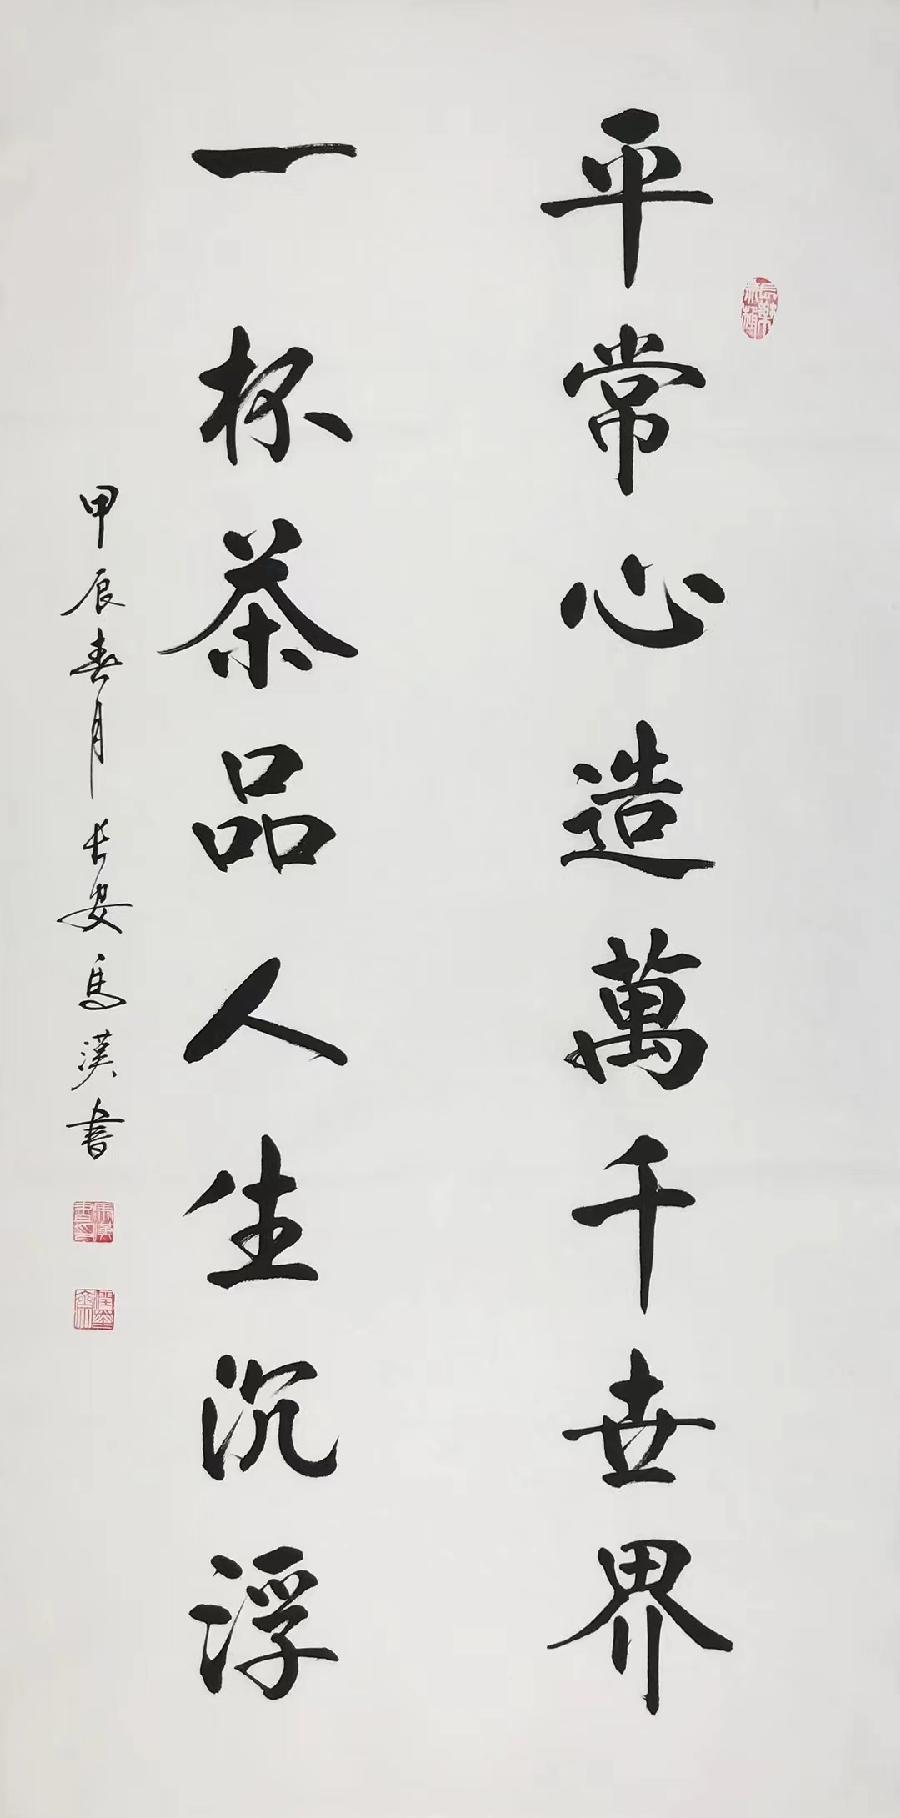 平常心造萬千世界
一杯茶品人生沉浮
甲辰春月長安馬漢書